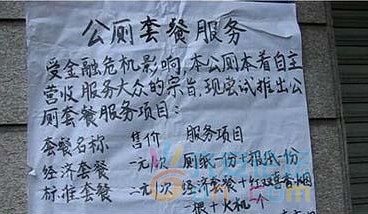 公厕套餐服务
受金融危机影响,本公厕本着自主
营收服务大众的宗旨,现尝试推出公
厕套餐服务项目:
套餐名称 售价 服务项目
经济套餐 一元/次 厕纸一份+报纸一份
标准套餐 二元/次 经济套餐+红双喜香烟
一根+火机一个